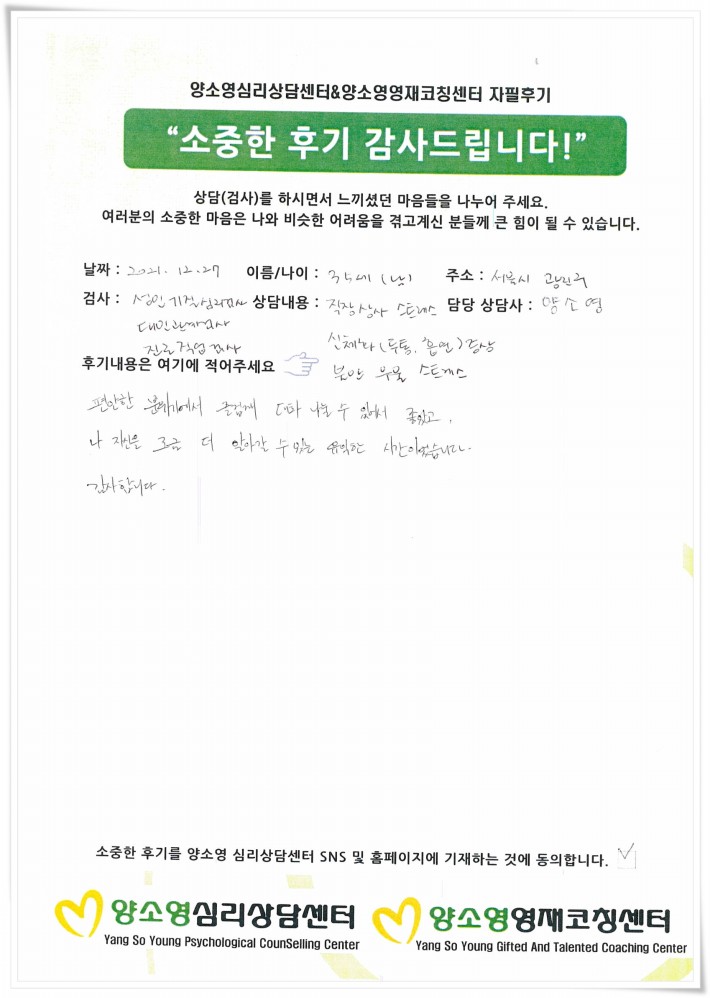 양소영심리상담센터&양소영영재코칭센터 자필후기
“소중한 후기 감사드립니다!”
상담(검사)를 하시면서 느끼셨던 마음들을 나누어 주세요.
여러분의 소중한 마음은 나와 비슷한 어려움을 겪고계신 분들께 큰 힘이 될 수 있습니다.
날짜 : 2021. 12. 27 이름/나이 : 35세 (남) 주소 : 서울시 광진구
검사 : 성인기질심리검사 상담내용 : 직장상사 스트레스 담당 상담사 : 양소영
대인관계검사
신체화 (두통, 흡연) 증상
진로직업검사
후기내용은 여기에 적어주세요
불안 우울 스트레스
편안한 분위기에서 즐겁게 대화 나눌 수 있어서 좋았고,
나 자신을 조금 더 알아갈 수 있는 유익한 시간이었습니다.
감사합니다.
소중한 후기를 양소영 심리상담센터 SNS 및 홈페이지에 기재하는 것에 동의합니다. ✓
양소영심리상담센터
Yang So Young Psychological CounSelling Center
양소영영재코칭센터
Yang So Young Gifted And Talented Coaching Center